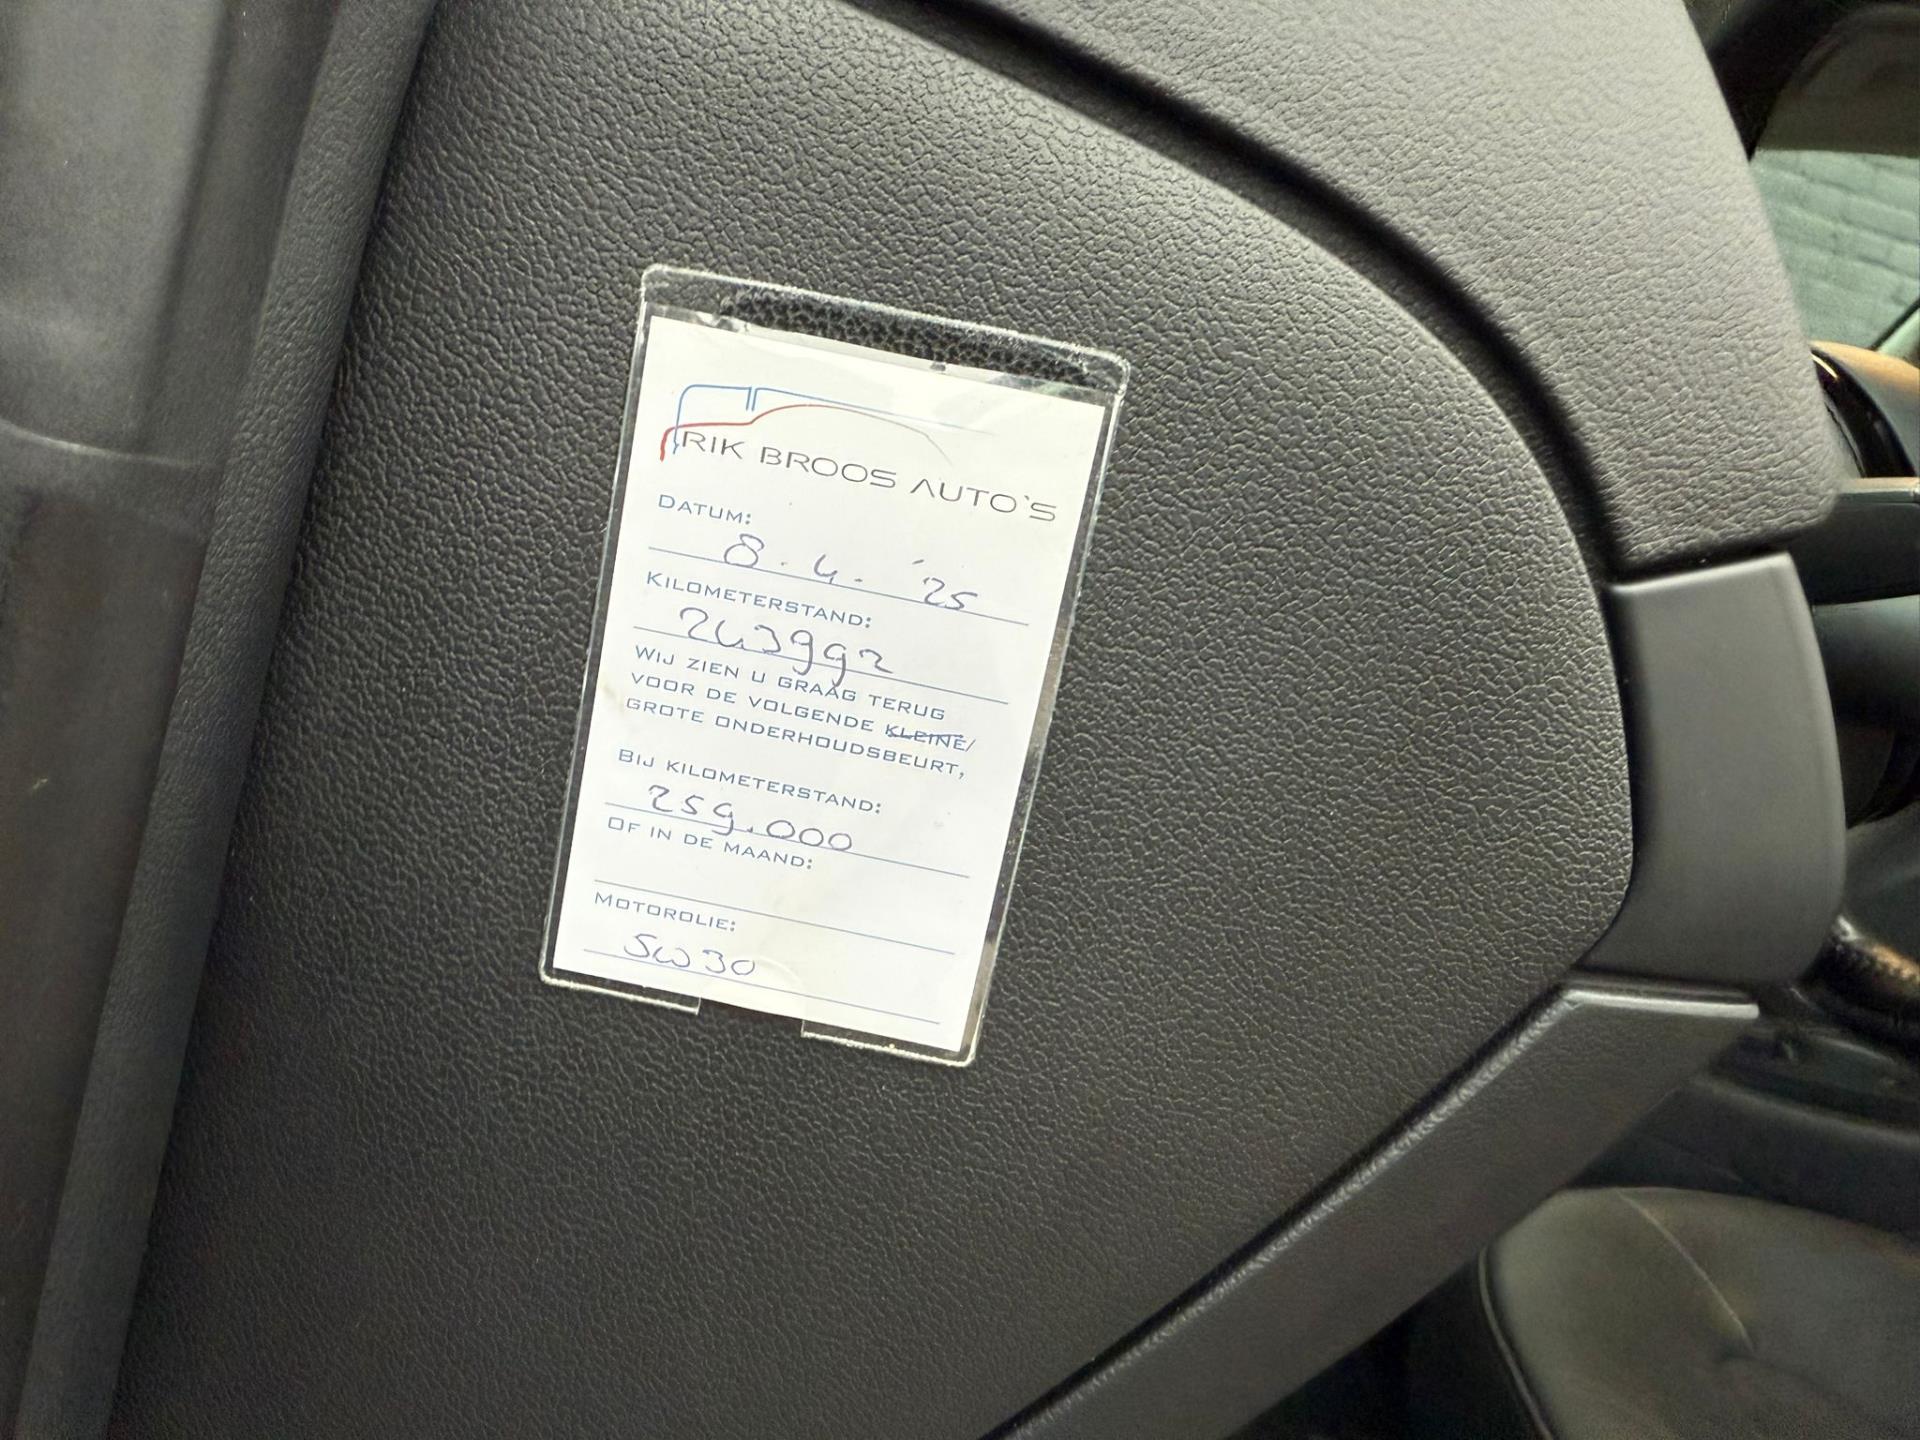 RIK BROOS AUTO'S
DATUM:
8.4. '25
KILOMETERSTAND:
243992
WIJ ZIEN U GRAAG TERUG
VOOR DE VOLGENDE KLEINE/
GROTE ONDERHOUDSBEURT,
BIJ KILOMETERSTAND:
259.000
OF IN DE MAAND:
MOTOROLIE:
5W30